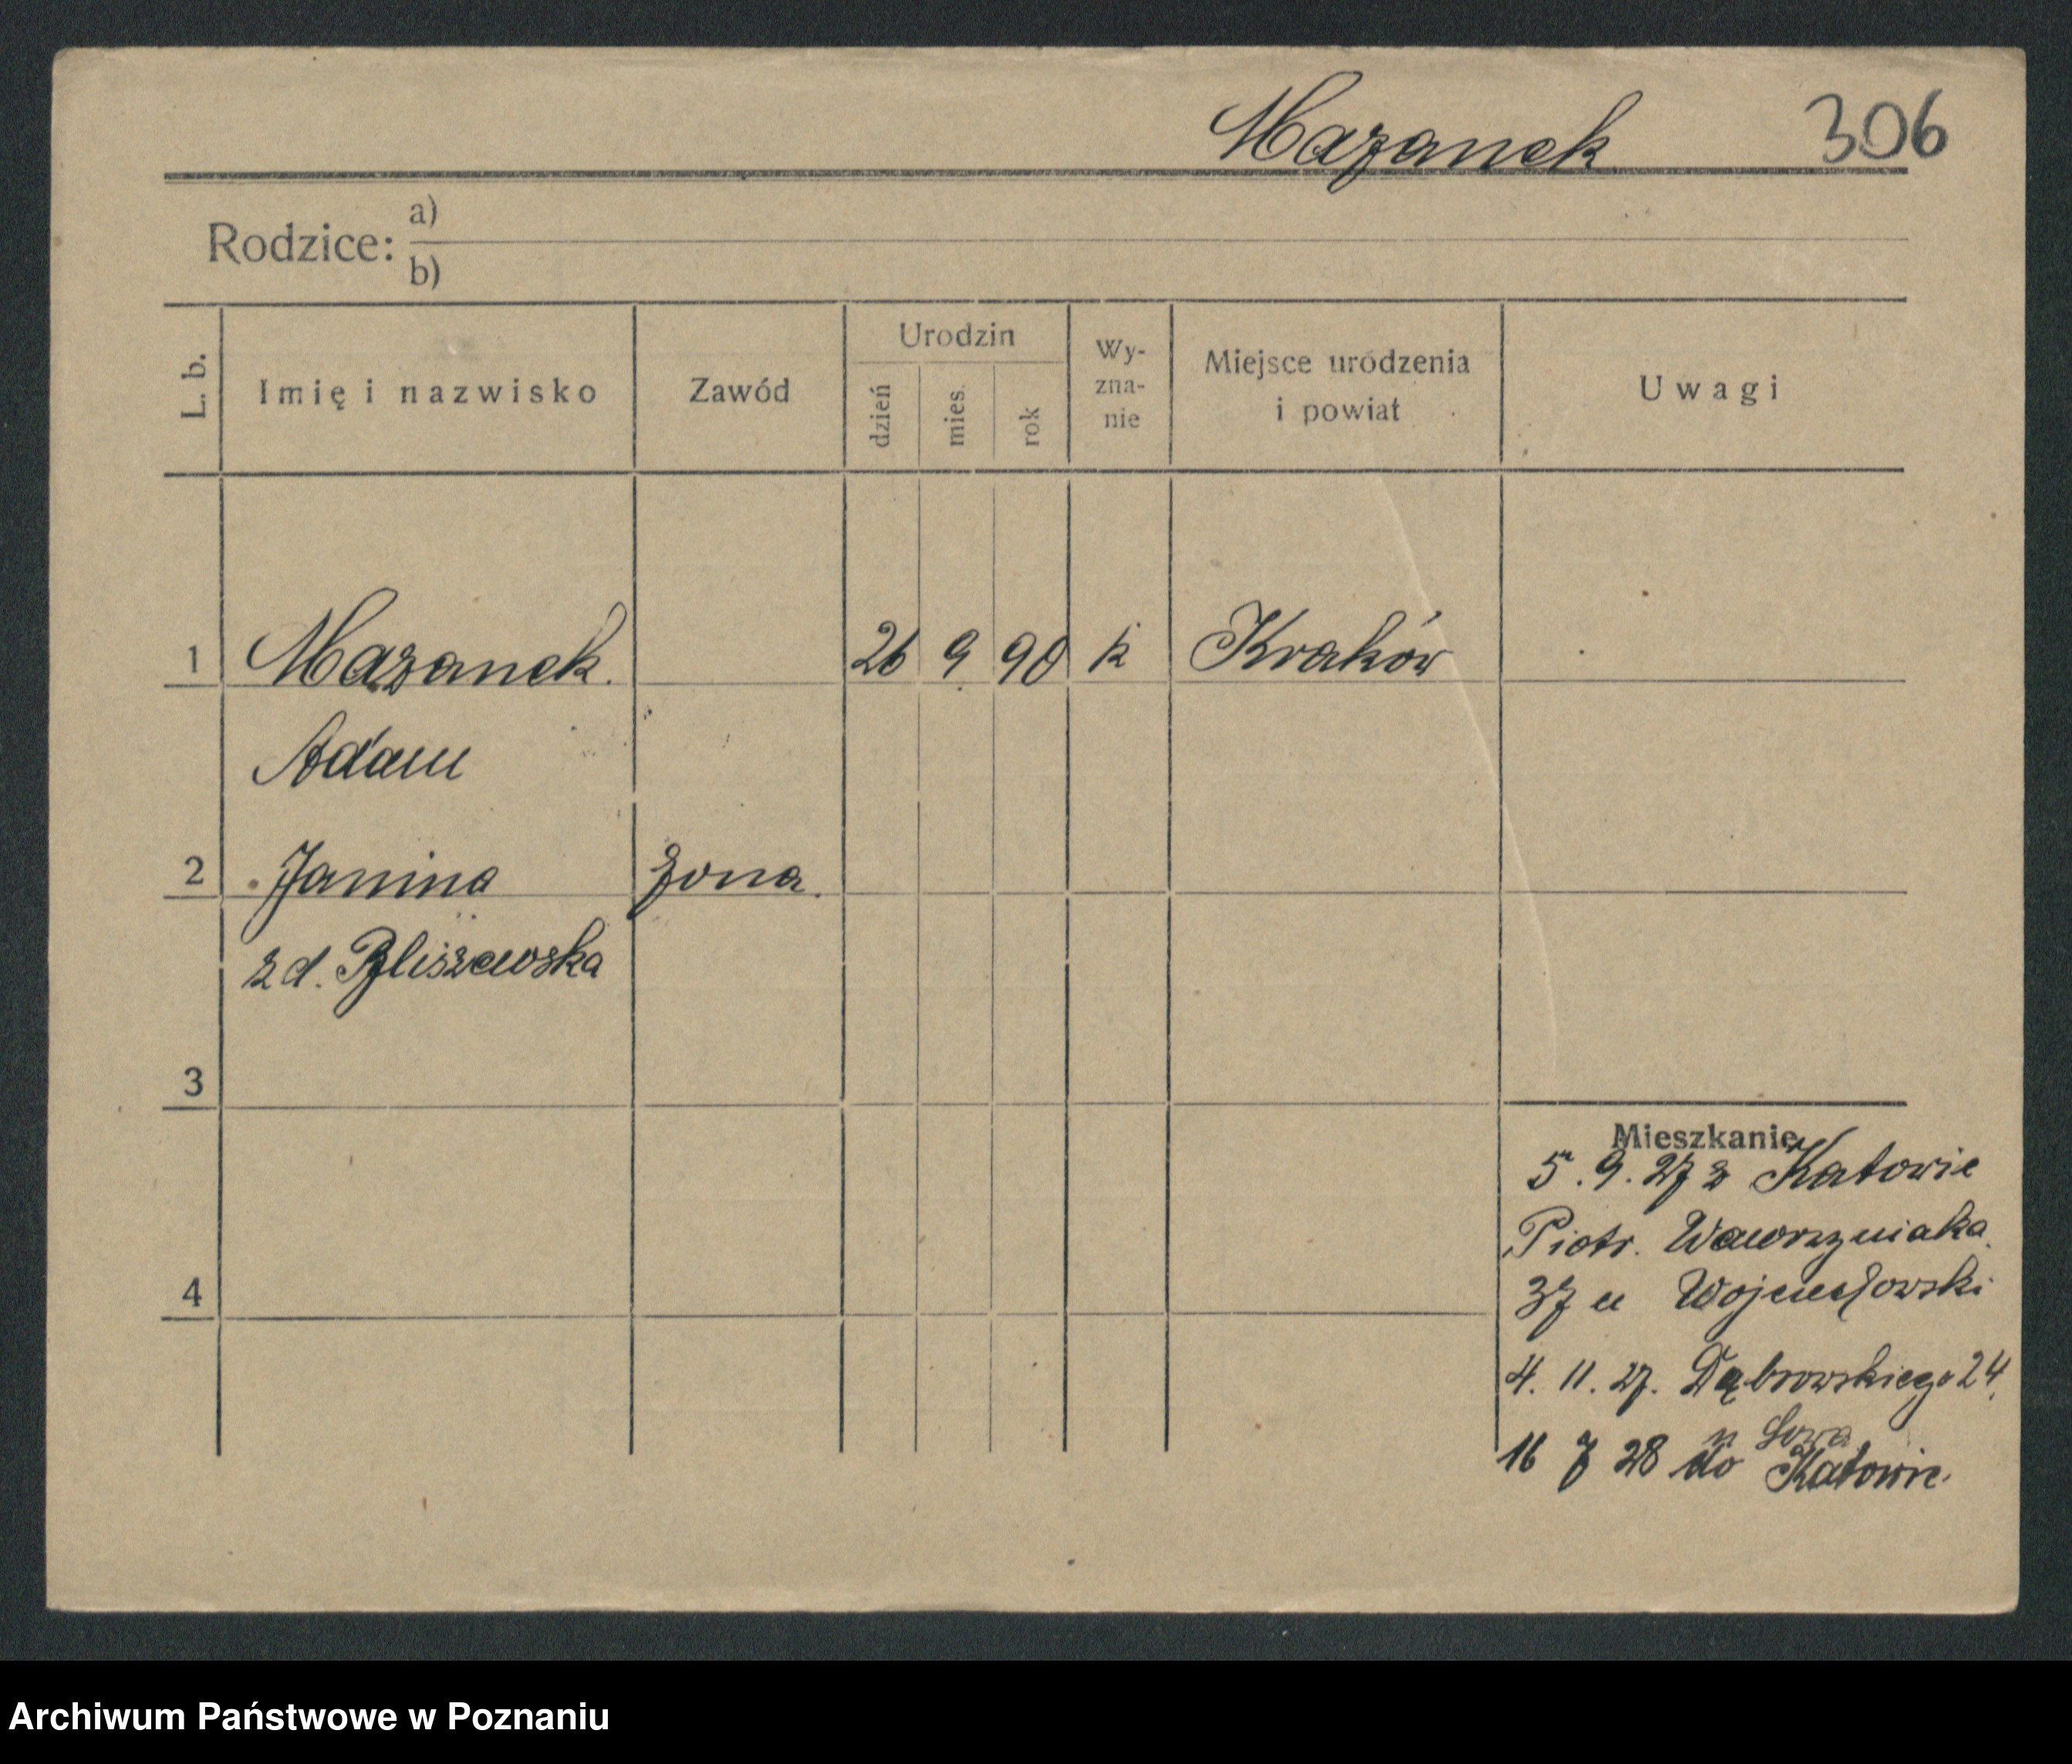 Mazanek 306
Rodzice: a)
b)
L. b. Imię i nazwisko Zawód Urodzin dzień mies. rok Wy-zna-nie Miejsce urodzenia i powiat Uwagi
1 Mazanek. 26 9 90 k Kraków
Adam
2 Janina żona.
z d.
3
Mieszkanie
5. 9. 27 z Katowic
Piotr. Wawrzyniaka
37 u
4
4. 11. 27. Dąbrowskiego 24
u Sowa
16 7 28 do Katowic.
Archiwum Państwowe w Poznaniu